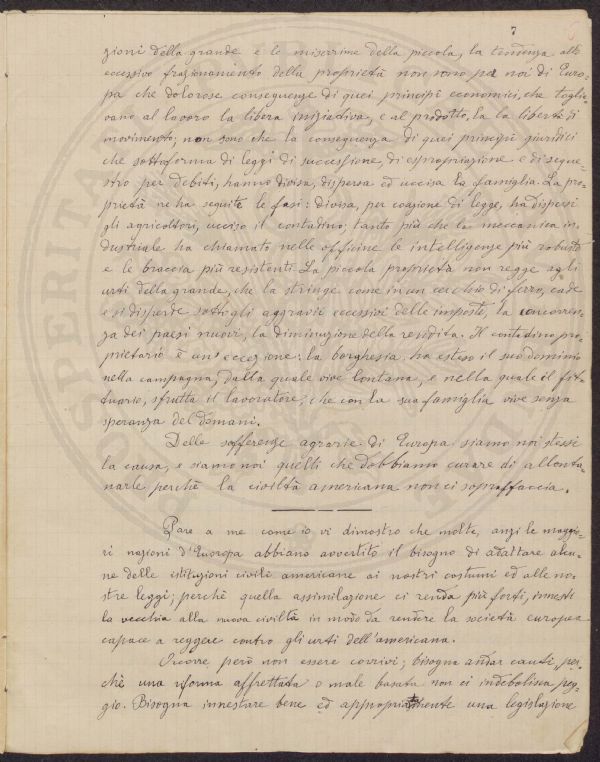 7
zioni della grande e le miserrime della piccola, la tendenza allo
eccessivo frazionamento della proprietà non sono per noi di Euro-
pa che dolorose conseguenze di quei principî economici, che toglie-
vano al lavoro la libera iniziativa, e al prodotto, la la libertà di
movimento; non sono che la conseguenza di quei principî giuridici
che sotto forma di leggi di successione, di espropriazione e di seque-
stro per debiti, hanno divisa, dispersa ed uccisa la famiglia. La pro-
prietà ne ha seguite le fasi: divisa, per coazione di legge, ha dispersi
gli agricoltori, ucciso il contadino; tanto più che la meccanica in-
dustriale ha chiamato nelle officine le intelligenze più robuste
e le braccia più resistenti. La piccola proprietà non regge agli
urti della grande, che la stringe come in un cerchio di ferro, cade
e si disperde sotto gli aggravii eccessivi delle imposte, la concorren-
za dei paesi nuovi, la diminuzione della rendita. Il contadino pro-
prietario è un'eccezione: la borghesia ha esteso il suo dominio
nella campagna, dalla quale vive lontana, e nella quale il fit-
tuario, sfrutta il lavoratore, che con la sua famiglia vive senza
speranza del domani.
Delle sofferenze agrarie di Europa siamo noi stessi
la causa, e siamo noi quelli che dobbiamo curare di allonta-
narle perchè la civiltà americana non ci sopraffaccia.
Pare a me come io vi dimostro che molte, anzi le maggio-
ri nazioni d'Europa abbiano avvertito il bisogno di adattare alcu-
ne delle istituzioni civili americane ai nostri costumi ed alle no-
stre leggi; perchè quella assimilazione ci renda più forti, innesti
la vecchia alla nuova civiltà in modo da rendere la società europea
capace a reggere contro gli urti dell'americana.
Occorre però non essere corrivi; bisogna andar cauti, per-
chè una riforma affrettata o male basata non ci indebolisca peg-
gio. Bisogna innestare bene ed appropriatamente una legislazione